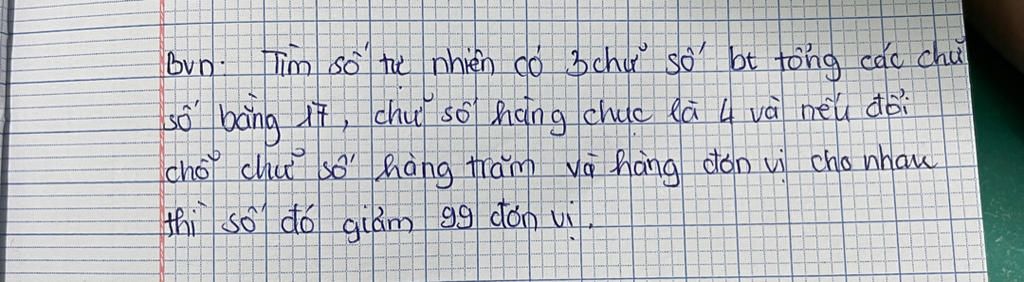 BVN: Tìm số tự nhiên có 3 chữ số bt tổng các chữ
số bằng 17, chữ số hàng chục là 4 và nếu đổi
chỗ chữ số hàng trăm và hàng đơn vị cho nhau
thì số đó giảm 99 đơn vị.